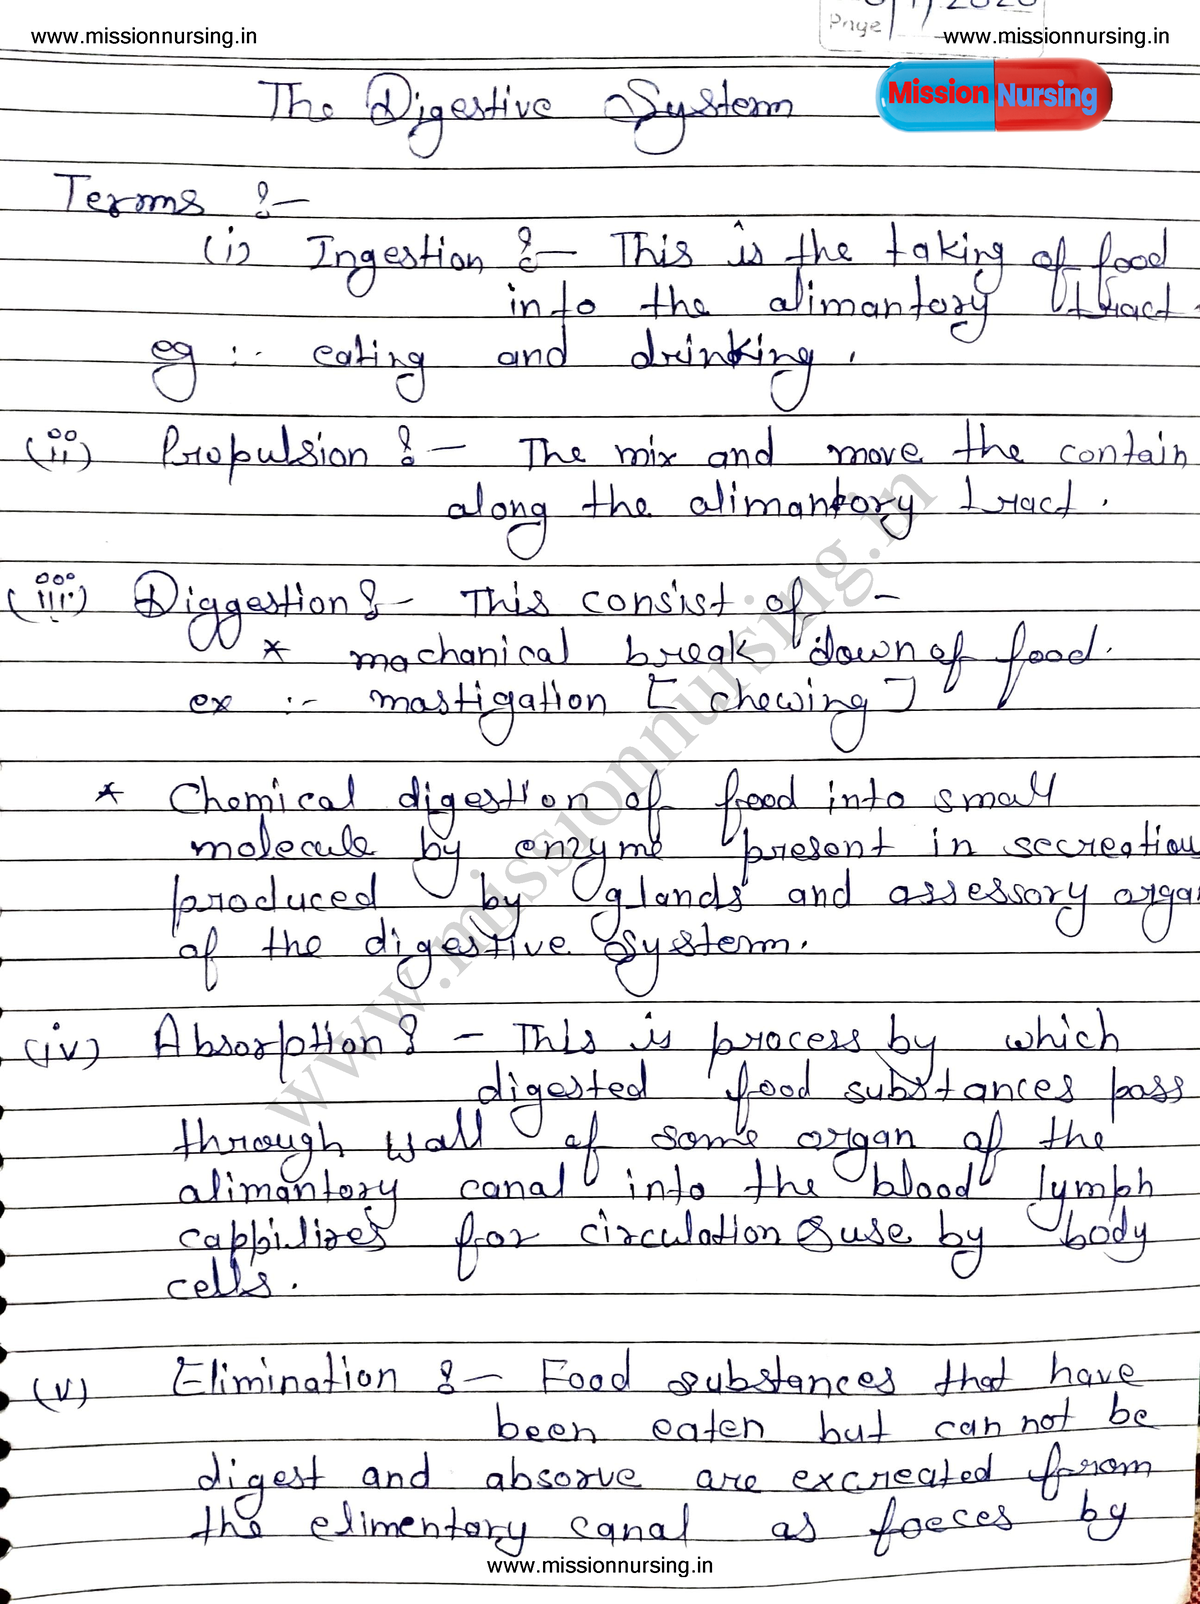 www.missionnursing.in
Page
www.missionnursing.in
The Digestive System
Mission Nursing
Terms :-
(i) Ingestion :- This is the taking of food
into the alimantory tract.
eg :- eating and drinking.
(ii) Propulsion :- The mix and move the contain
along the alimantory tract.
(iii) Diggestion :- This consist of -
* machanical break down of food.
ex :- mastigation [ chewing ]
* Chemical digestion of food into small
molecule by enzyme present in secreation
produced by glands and assessory orga
of the digestive system.
(iv) Absorption :- This is process by which
digested food substances pass
through wall of some organ of the
alimantory canal into the blood lymph
cappilires for circulation & use by body
cells.
(v) Elimination :- Food substances that have
been eaten but can not be
digest and absorve are excreated from
the elimentory canal as foeces by
www.missionnursing.in
www.missionnursing.in